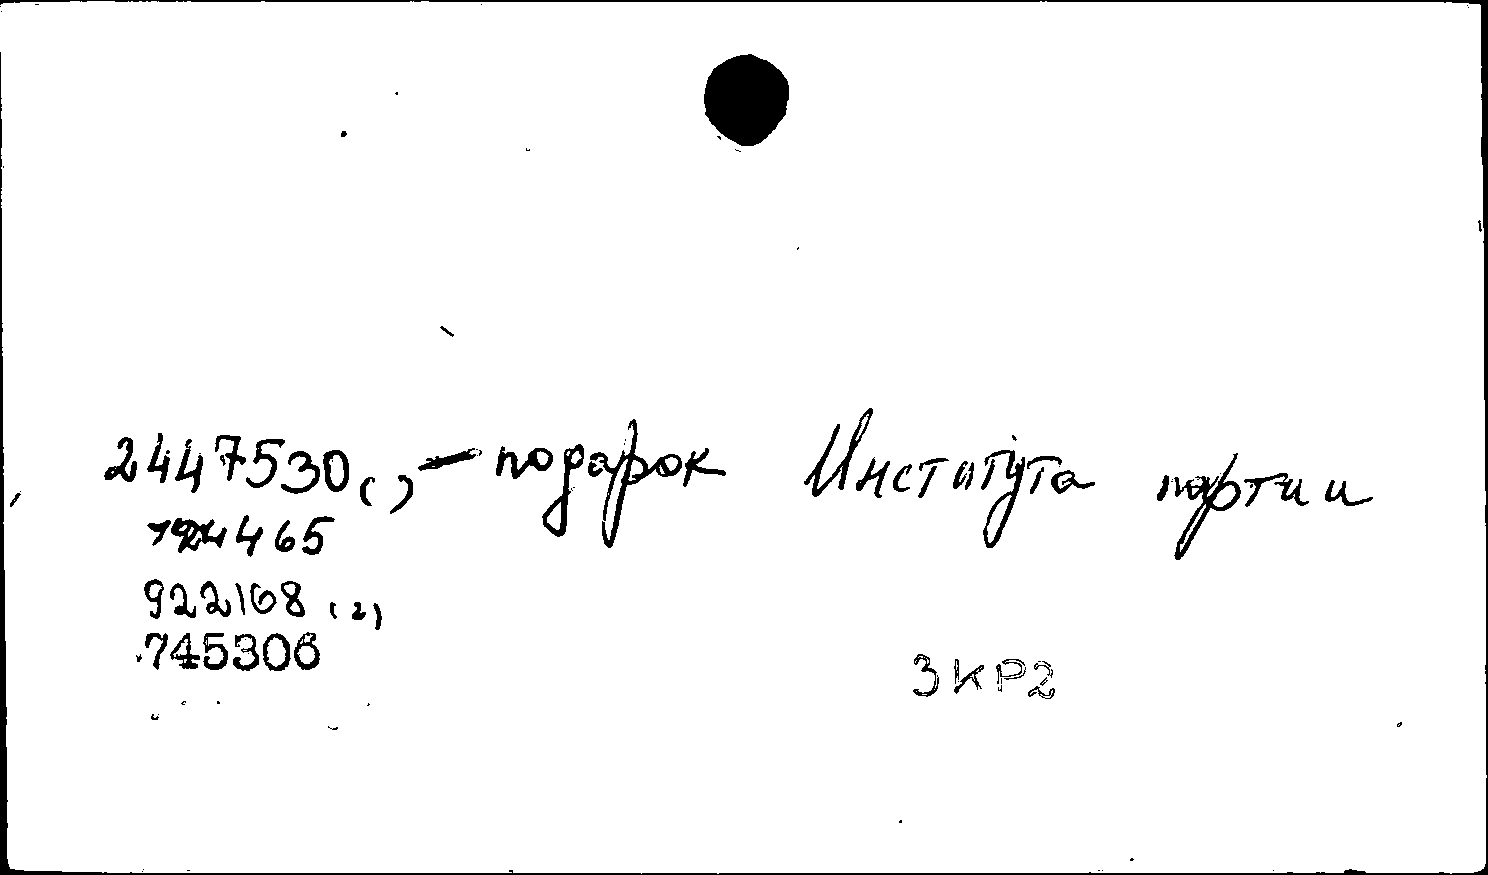 2447530( ) — подарок Института партии
922168 (2)
745306
3КР2